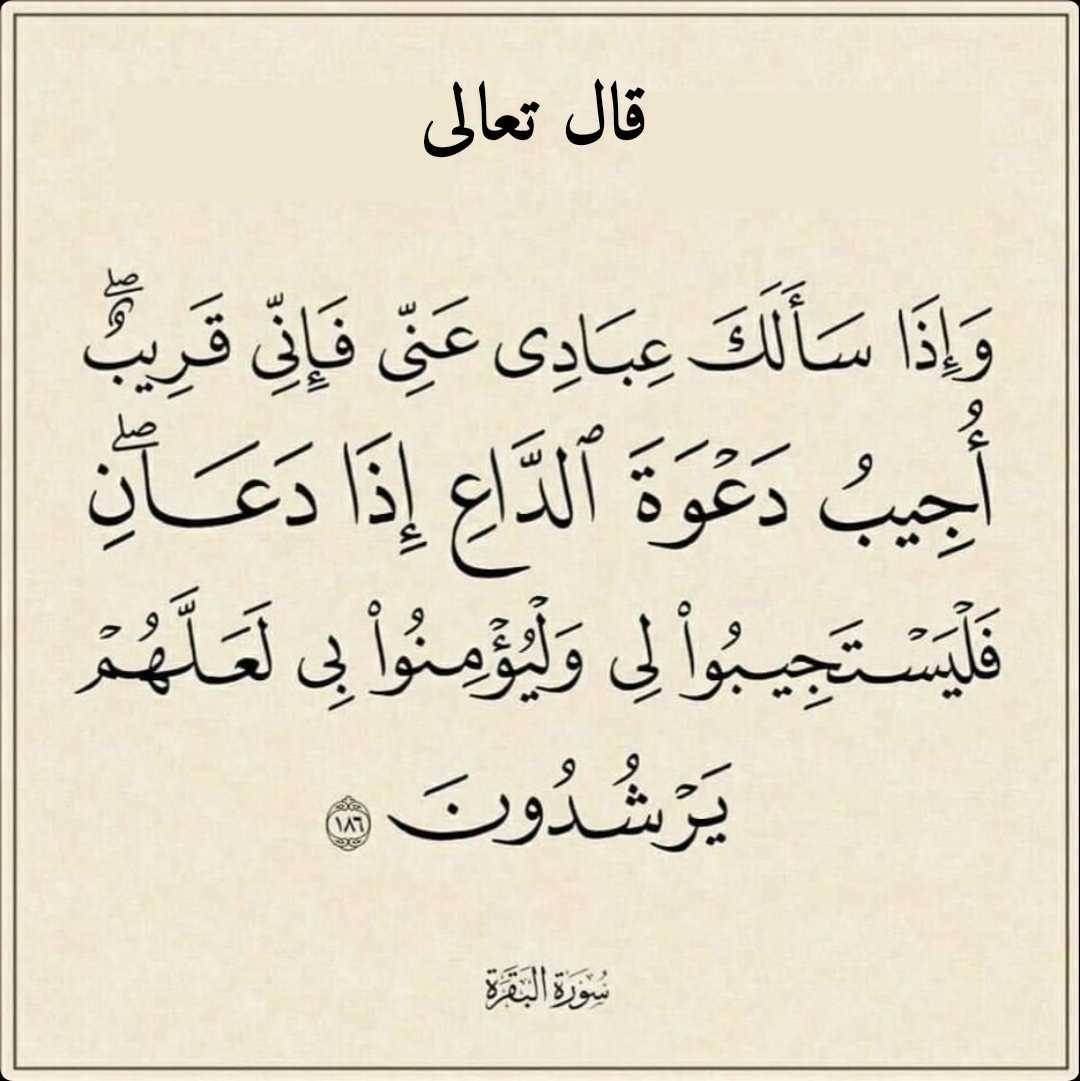 قال تعالى
وَإِذَا سَأَلَكَ عِبَادِى عَنِّى فَإِنِّى قَرِيبٌۖ
أُجِيبُ دَعْوَةَ ٱلدَّاعِ إِذَا دَعَانِۖ
فَلْيَسْتَجِيبُوا۟ لِى وَلْيُؤْمِنُوا۟ بِى لَعَلَّهُمْ
يَرْشُدُونَ ١٨٦
سُورَة البَقَرَة